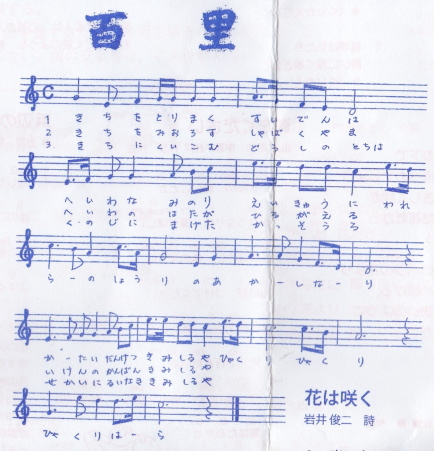 百里
1 きちをとりまく すいでんは
2 きちをみおろす しゃばくやま
3 きちにくいこむ どうしのとちは
へいわな みのり えいきゅうに われ
へいわの はたが ひるがえる
くのじに まげた かっそうろ
らーのしょうりのあかーしなーり
かーたいだんけつ きみしるや ひゃくり ひゃくり
いけんのかんばん きみしるや
せかいにるいなき きみしるや
ひゃくりはーら
花は咲く
岩井俊二 詩